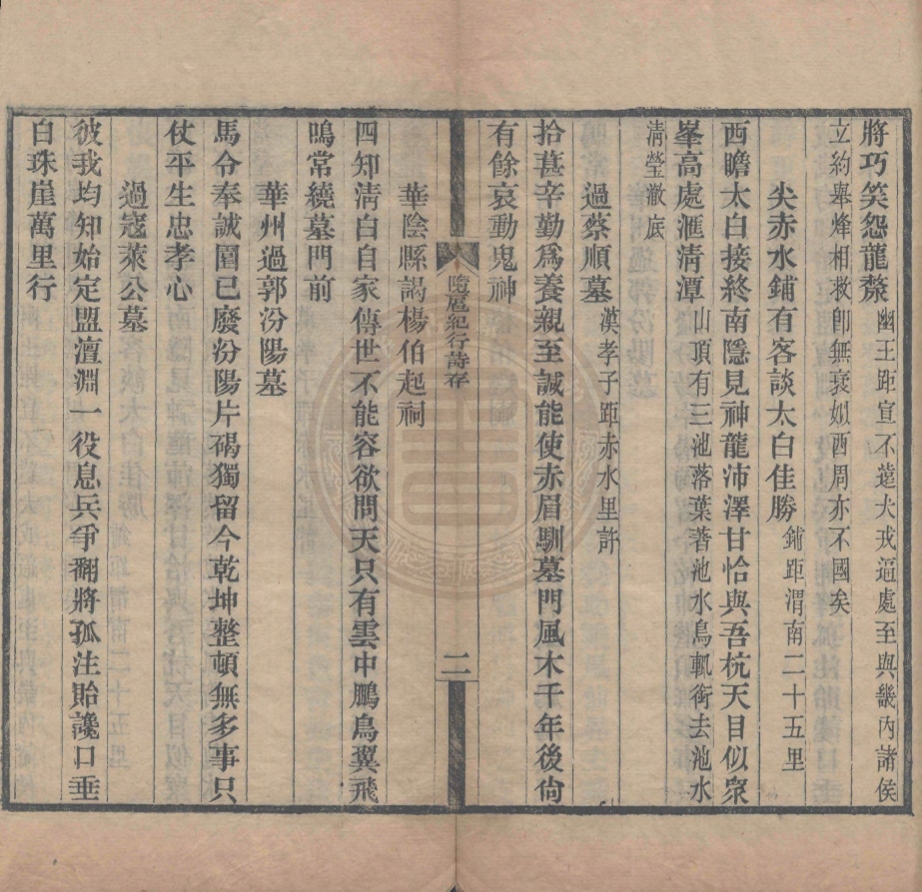 將巧笑怨龍漦幽王距宣不遠犬戎逼處至與畿內諸侯
立約舉烽相救卽無襃姒西周亦不國矣
尖赤水鋪有客談太白佳勝鋪距渭南二十五里
西瞻太白接終南隱見神龍沛澤甘恰與吾杭天目似眾
峯高處滙清潭山頂有三池落葉著池水鳥輒銜去池水
清瑩澈底
過蔡順墓漢孝子距赤水里許
拾葚辛勤爲養親至誠能使赤眉馴墓門風木千年後尙
有餘哀動鬼神
隨扈紀行詩存
二
華陰縣謁楊伯起祠
四知清白自家傳世不能容欲問天只有雲中鵬鳥翼飛
鳴常繞墓門前
華州過郭汾陽墓
馬令奉誠園已廢汾陽片碣獨留今乾坤整頓無多事只
仗平生忠孝心
過寇萊公墓
彼我均知始定盟澶淵一役息兵爭翻將孤注貽讒口垂
白珠崖萬里行